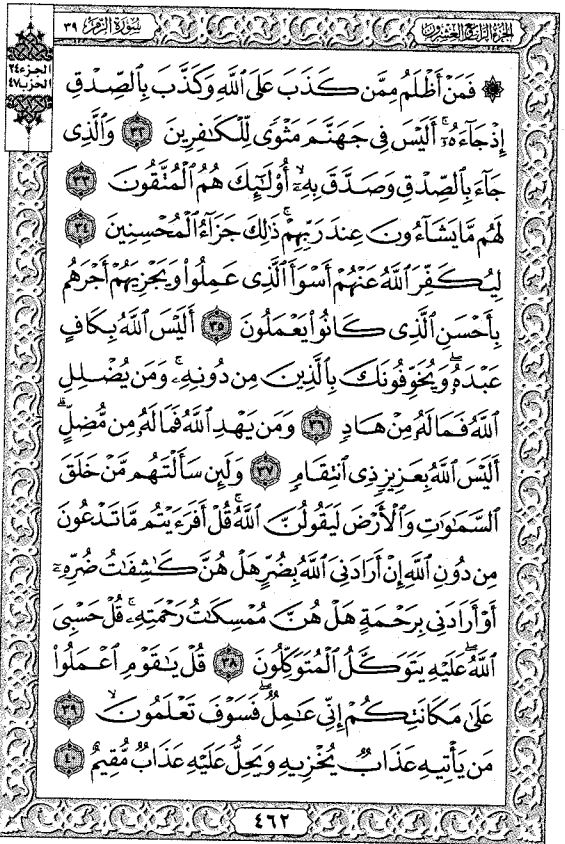 سُورَةُ الزُّمَرِ ٣٩
الجُزْءُ الرَّابِعُ وَالعِشْرُونَ
الجزء ٢٤
الحزب ٤٧
۞ فَمَنْ أَظْلَمُ مِمَّن كَذَبَ عَلَى ٱللَّهِ وَكَذَّبَ بِٱلصِّدْقِ
إِذْ جَآءَهُۥٓ ۚ أَلَيْسَ فِى جَهَنَّمَ مَثْوًى لِّلْكَـٰفِرِينَ ٣٢ وَٱلَّذِى
جَآءَ بِٱلصِّدْقِ وَصَدَّقَ بِهِۦٓ ۙ أُو۟لَـٰٓئِكَ هُمُ ٱلْمُتَّقُونَ ٣٣
لَهُم مَّا يَشَآءُونَ عِندَ رَبِّهِمْ ۚ ذَٰلِكَ جَزَآءُ ٱلْمُحْسِنِينَ ٣٤
لِيُكَفِّرَ ٱللَّهُ عَنْهُمْ أَسْوَأَ ٱلَّذِى عَمِلُوا۟ وَيَجْزِيَهُمْ أَجْرَهُم
بِأَحْسَنِ ٱلَّذِى كَانُوا۟ يَعْمَلُونَ ٣٥ أَلَيْسَ ٱللَّهُ بِكَافٍ
عَبْدَهُۥ ۖ وَيُخَوِّفُونَكَ بِٱلَّذِينَ مِن دُونِهِۦ ۚ وَمَن يُضْلِلِ
ٱللَّهُ فَمَا لَهُۥ مِنْ هَادٍ ٣٦ وَمَن يَهْدِ ٱللَّهُ فَمَا لَهُۥ مِن مُّضِلٍّ ۗ
أَلَيْسَ ٱللَّهُ بِعَزِيزٍ ذِى ٱنتِقَامٍ ٣٧ وَلَئِن سَأَلْتَهُم مَّنْ خَلَقَ
ٱلسَّمَـٰوَٰتِ وَٱلْأَرْضَ لَيَقُولُنَّ ٱللَّهُ ۚ قُلْ أَفَرَءَيْتُم مَّا تَدْعُونَ
مِن دُونِ ٱللَّهِ إِنْ أَرَادَنِىَ ٱللَّهُ بِضُرٍّ هَلْ هُنَّ كَـٰشِفَـٰتُ ضُرِّهِۦٓ
أَوْ أَرَادَنِى بِرَحْمَةٍ هَلْ هُنَّ مُمْسِكَـٰتُ رَحْمَتِهِۦ ۚ قُلْ حَسْبِىَ
ٱللَّهُ ۖ عَلَيْهِ يَتَوَكَّلُ ٱلْمُتَوَكِّلُونَ ٣٨ قُلْ يَـٰقَوْمِ ٱعْمَلُوا۟
عَلَىٰ مَكَانَتِكُمْ إِنِّى عَـٰمِلٌ ۖ فَسَوْفَ تَعْلَمُونَ ۙ ٣٩
مَن يَأْتِيهِ عَذَابٌ يُخْزِيهِ وَيَحِلُّ عَلَيْهِ عَذَابٌ مُّقِيمٌ ٤٠
٤٦٢